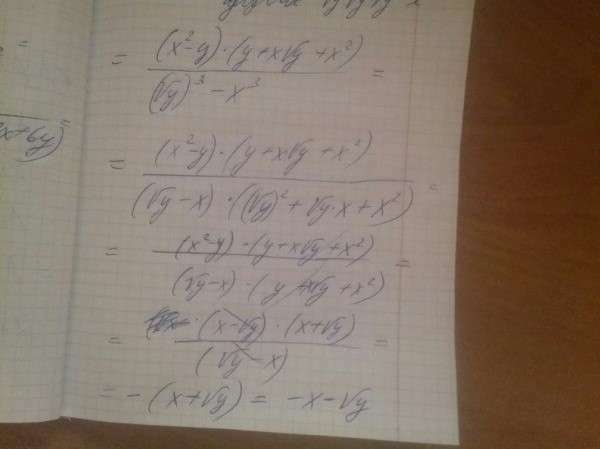 = (x²-y)·(y+x√y+x²) / (√y)³-x³ =
2x+6y) =
= (x²-y)·(y+x√y+x²) / (√y-x)·((√y)²+√y·x+x²) =
= (x²-y)·(y+x√y+x²) / (√y-x)·(y+x√y+x²) =
= (x-√y)·(x+√y) / (√y-x) =
= -(x+√y) = -x-√y